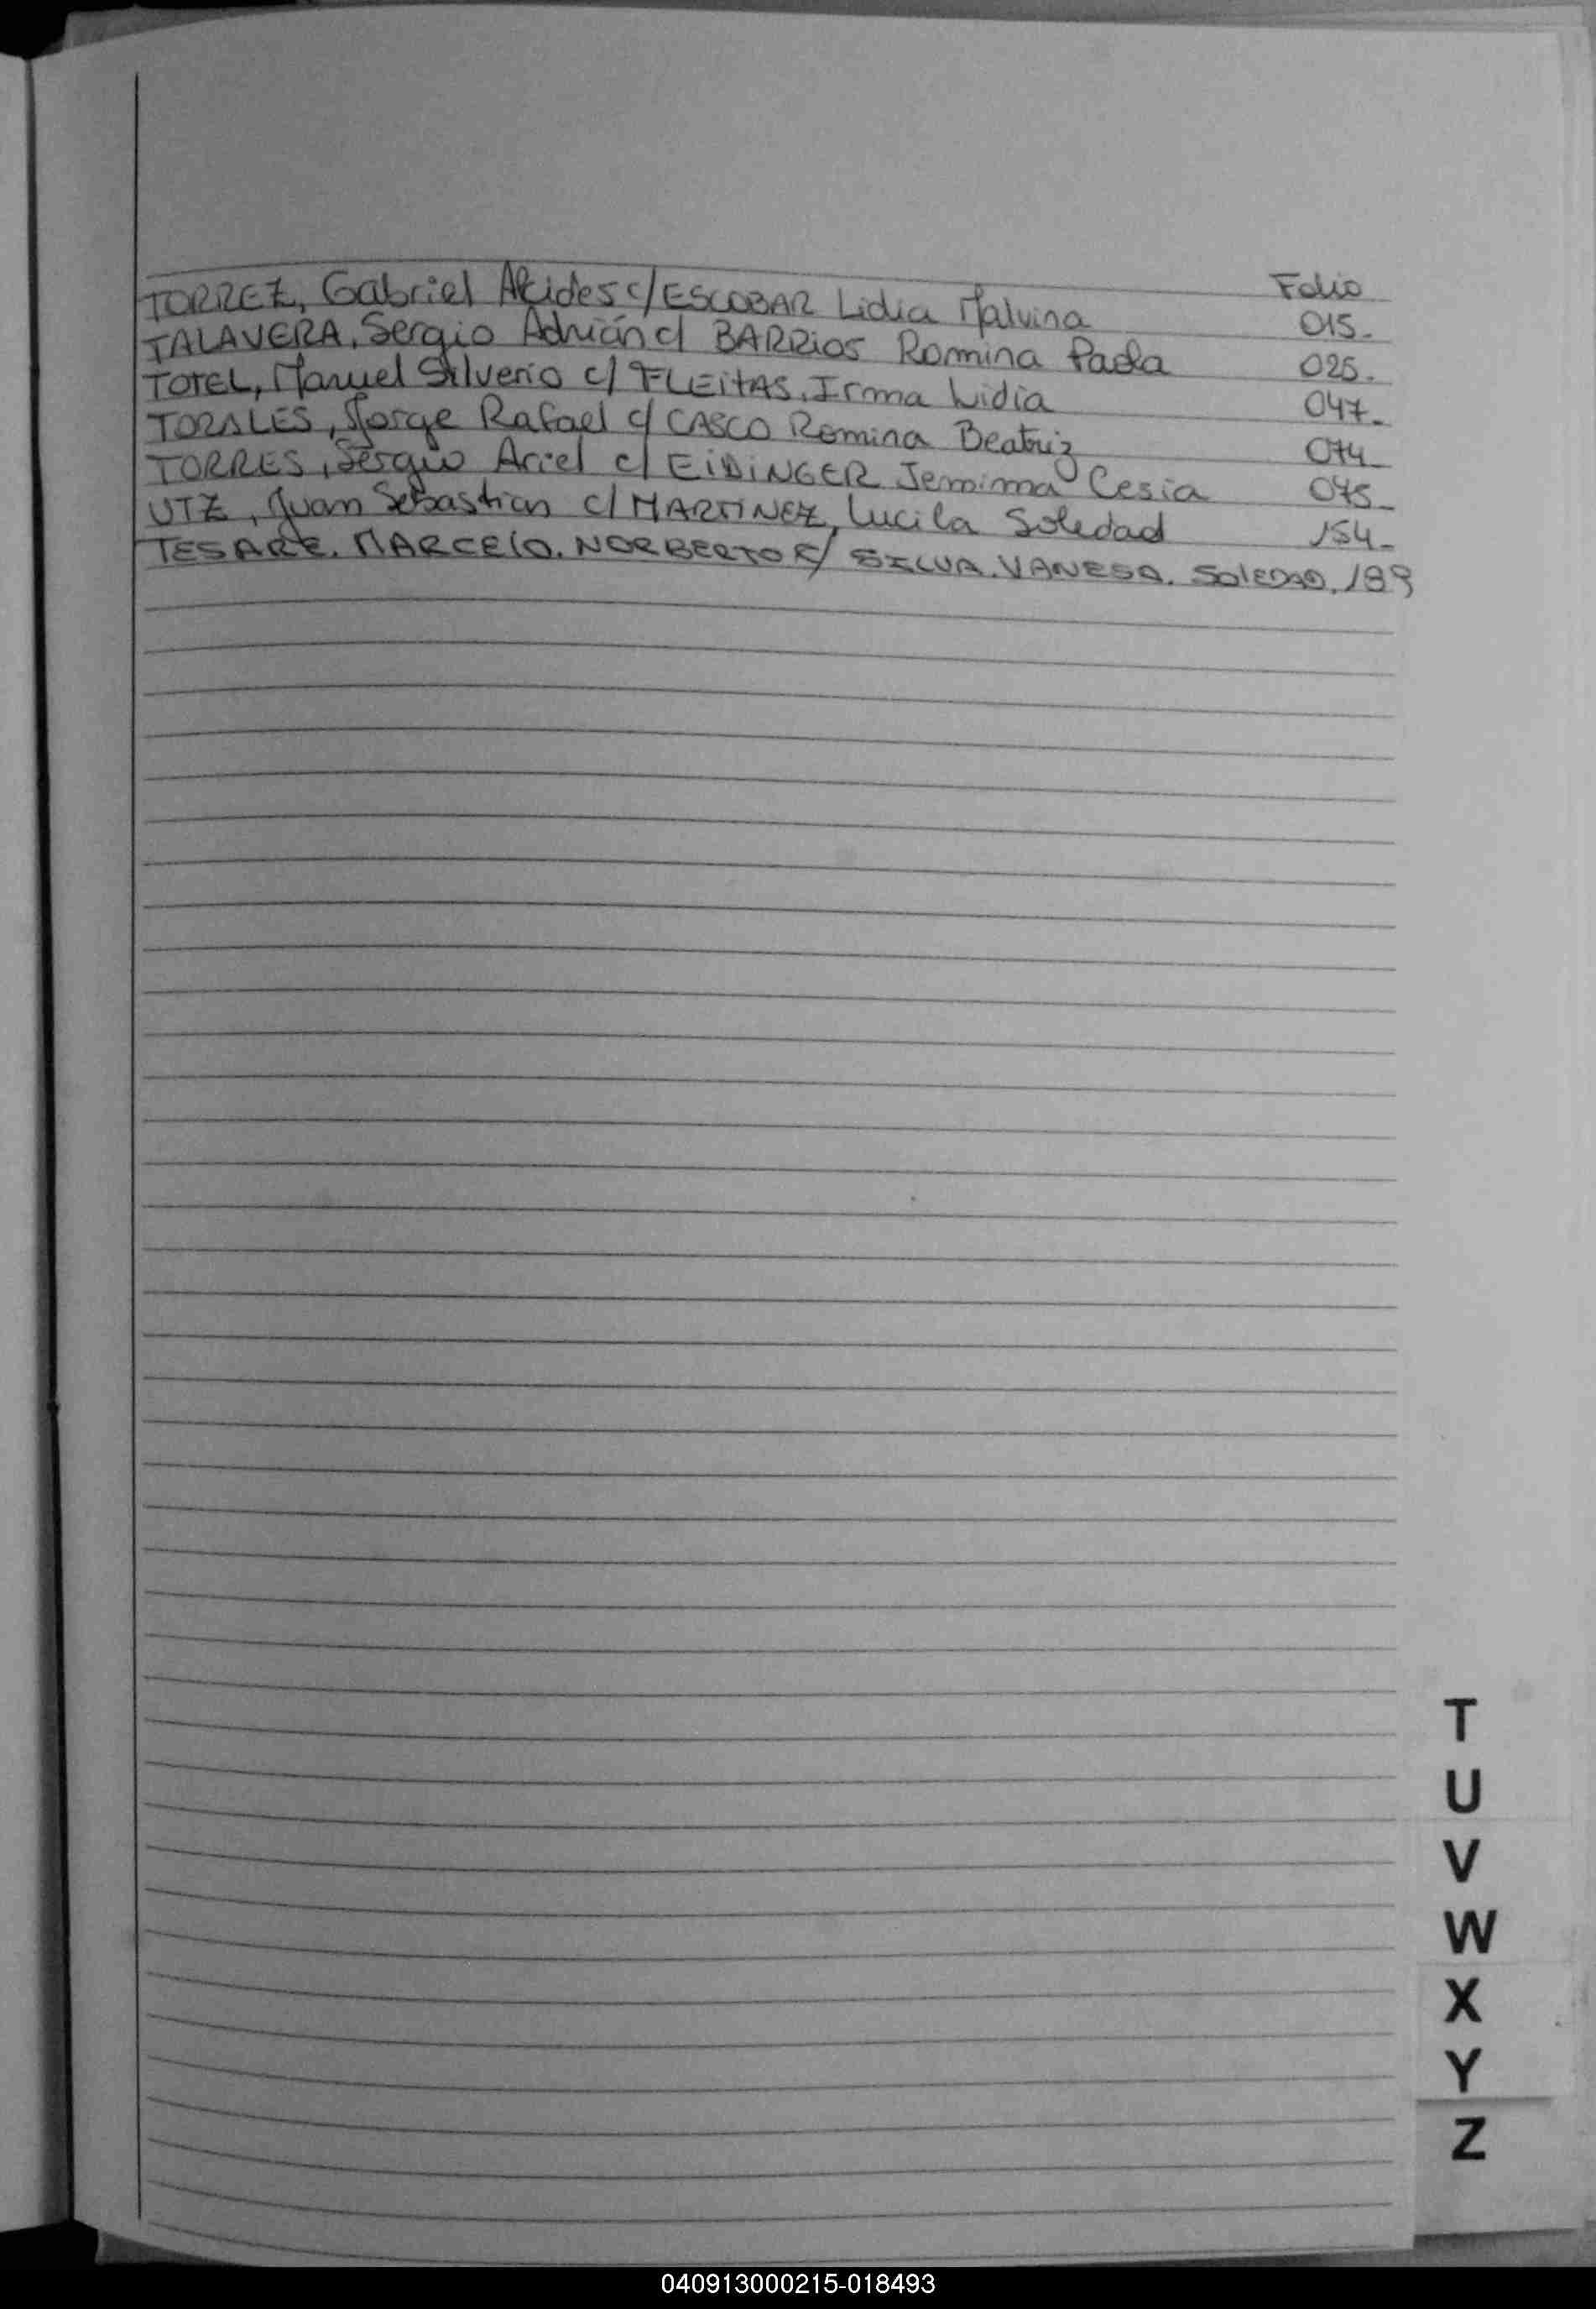 Folio
TORREZ, Gabriel Alcides c/ ESCOBAR Lidia Malvina 015.-
TALAVERA, Sergio Adrián c/ BARRIOS Romina Paola 025.-
TOTEL, Manuel Silverio c/ FLEITAS, Irma Lidia 047.-
TORALES, Jorge Rafael c/ CASCO Romina Beatriz 074.-
TORRES, Sergio Ariel c/ EIDINGER Jemima Cesia 075.-
UTZ, Juan Sebastian c/ MARTINEZ, Lucila Soledad 154.-
TESARE. MARCELO. NORBERTO c/ SILVA. VANESA. SOLEDAD. 189
T
U
V
W
X
Y
Z
040913000215-018493